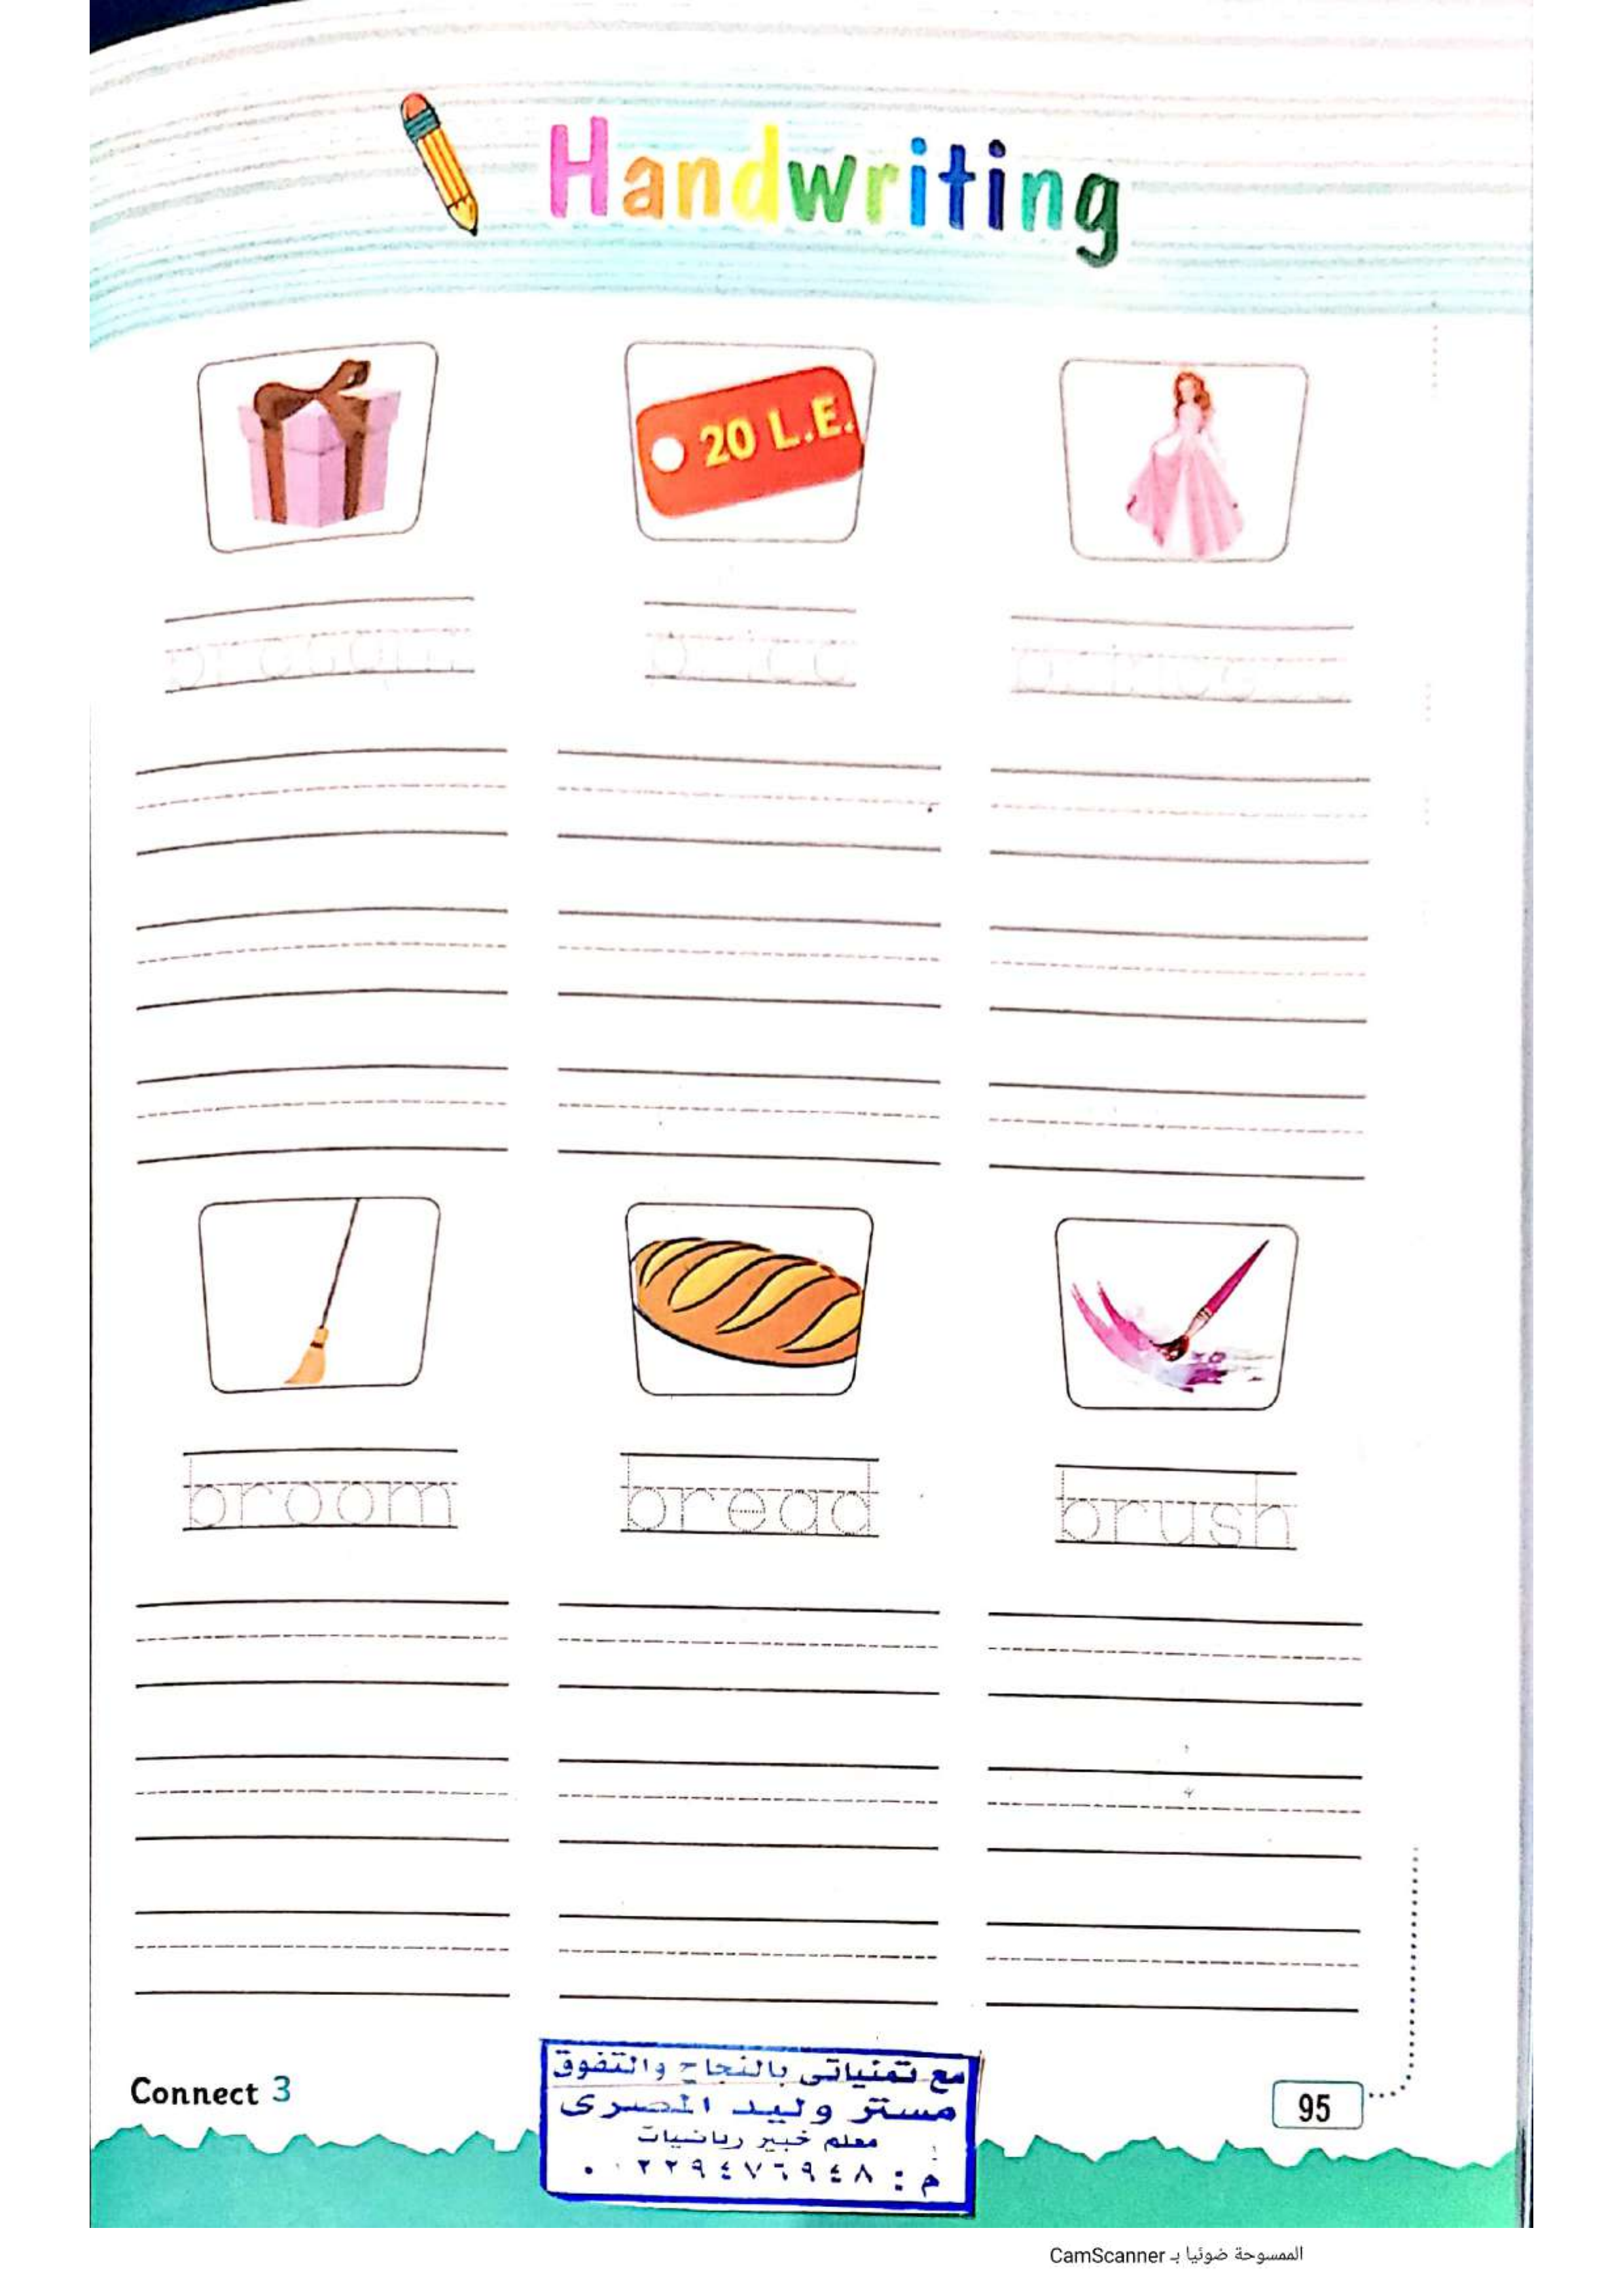 Handwriting
20 L.E.
present
price
princess
broom
bread
brush
Connect 3
مع تمنياتى بالنجاح والتفوق
مستر وليد المصرى
معلم خبير رياضيات
95
الممسوحة ضوئيا بـ CamScanner